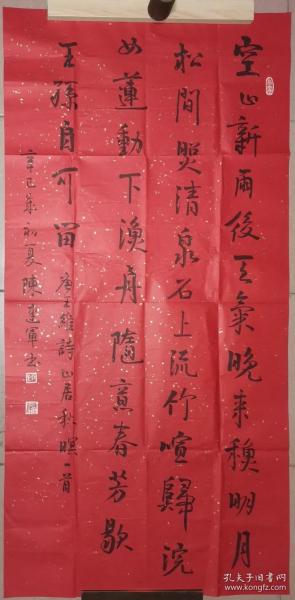 空山新雨後天氣晚来穐明月
松間照清泉石上流竹喧歸浣
女蓮動下漁舟隨意春芳歇
王孫自可留 唐王維詩山居秋暝一首
辛巳年初夏陳建軍书
孔夫子旧书网